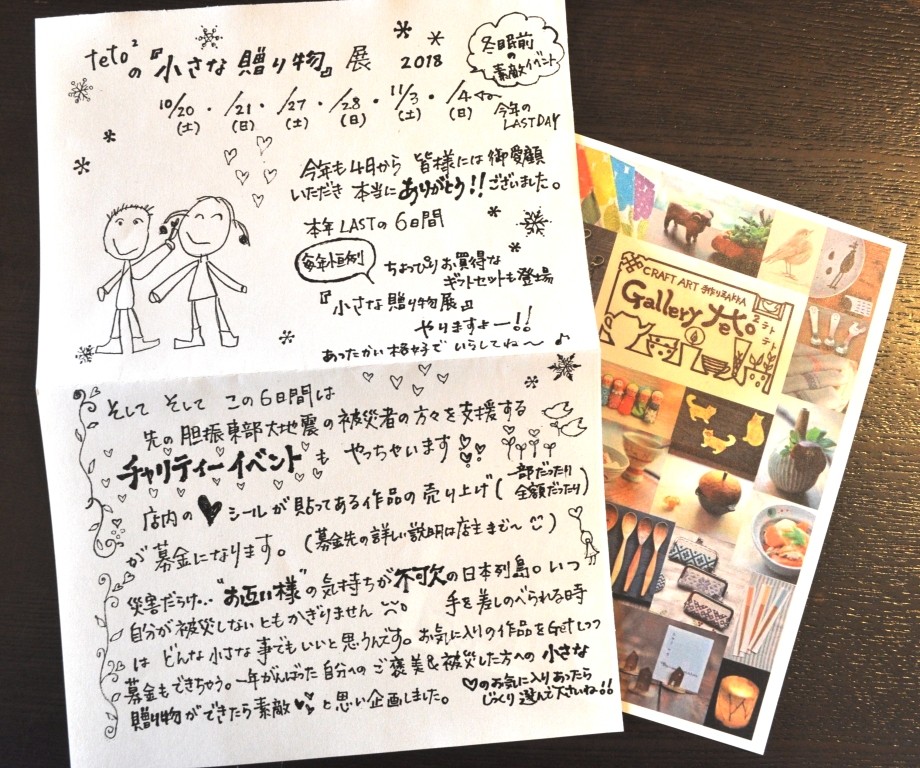 teto²の『小さな贈り物』展 2018
冬眠前の素敵イベント
10/20(土)・/21(日)・/27(土)・/28(日)・11/3(土)・/4(日)
今年のLASTDAY
今年も4月から 皆様には御愛顧
いただき 本当にありがとう!!ございました。
本年LASTの6日間
毎年恒例
ちょっぴりお買得な
ギフトセットも登場
『小さな贈り物展』
やりますよー!!
あったかい格好でいらしてね〜♪
そして そして この6日間は
先の胆振東部大地震の被災者の方々を支援する
チャリティーイベントも やっちゃいます
店内の♥シールが貼ってある作品の売り上げ(一部だったり全額だったり)
が募金になります。(募金先の詳しい説明は店主まで〜)
災害だらけ… "お互い様"の気持ちが不可欠の日本列島。いつ
自分が被災しないともかぎりません。 手を差しのべられる時
は どんな小さな事でもいいと思うんです。お気に入りの作品をGetしつつ
募金もできちゃう。一年がんばった自分へのご褒美&被災した方への小さな
贈り物ができたら素敵♥と思い企画しました。
♡のお気に入りあったら
じっくり選んで下さいね!!
CRAFT ART 手作りZAKKA
Gallery teto²
テト
テト